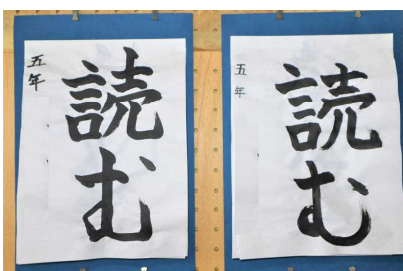 五年
読む
五年
読む